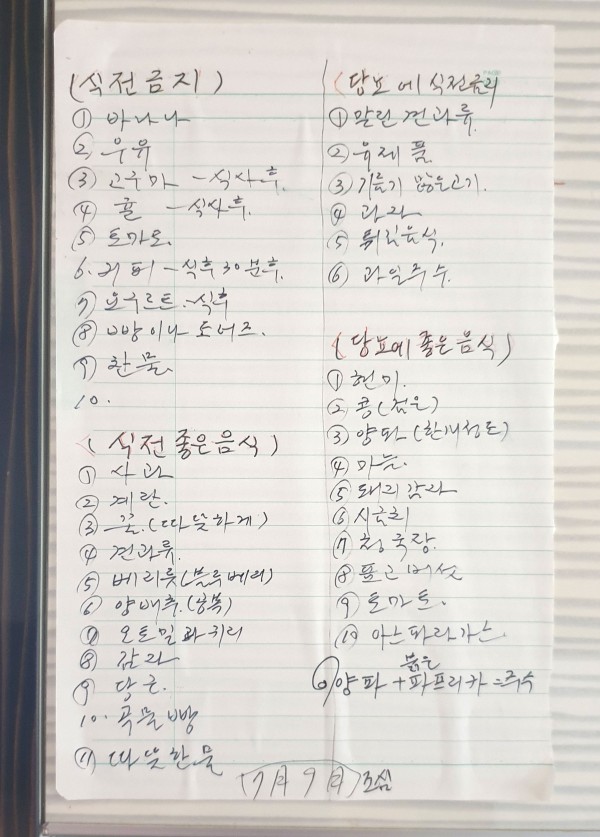 (식전금지)
① 바나나
② 우유
③ 고구마 - 식사후.
④ 귤 - 식사후.
⑤ 토마토.
6. 커피 - 식후 30분후.
⑦ 요구르트. - 식후
⑧ 빵이나 도너즈.
⑨ 찬물.
10.
(식전 좋은음식)
① 사과
② 계란.
③ 꿀.(따뜻하게)
④ 견과류.
⑤ 베리류(블루베리)
⑥ 양배추.(공복)
⑦ 오토밀과 귀리
⑧ 감자
⑨ 당근.
10. 곡물빵
⑪ 따뜻한물
(당뇨에 식전금지
① 말린견과류.
② 유제품.
③ 기름기 많은고기.
④ 과자
⑤ 튀김음식.
⑥ 과일주수.
(당뇨에 좋은음식)
① 현미.
② 콩(검은)
③ 양파(한개정도)
④ 마늘.
⑤ 돼지감자
⑥ 시금치
⑦ 청국장.
⑧ 표고버섯
⑨ 토마토.
⑩ 아스파라가스.
양파 + 붉은 파프리카 = 주수
(7月 9日)